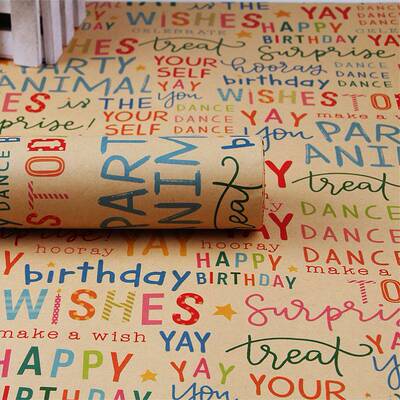 WISHES YAY HAPPY BIRTHDAY DANCE DANCE DANCE
CELEBRATE
PARTY ANIMAL treat Surprise
YOUR SELF hooray
YAY birthday
ES is THE you WISHES TOD
DANCE DANCE DANCE
prise! YOUR SELF YAY you PAR
ANIM
DANCE STOD PART ANIM treat b
treat
DANCE DANCE DANCE
hooray YAY YAY hooray
make a
PY birthday HAPPY BIRTHDAY
WISHES YAY Surpris
make a wish YAY treat YAY
HAPPY YAY
BIRTHDAY you YOUR b